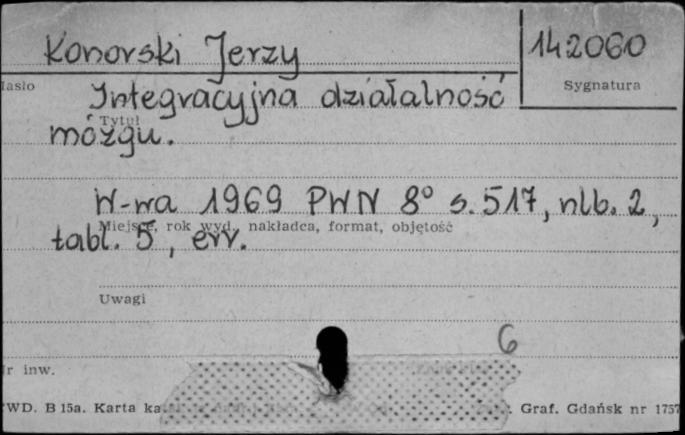 Konorski Jerzy
142060
Hasło
Sygnatura
Integracyjna działalność
Tytuł
mózgu.
W-wa 1969 PWN 8° s. 517, nlb. 2,
Miejsce, rok wyd., nakładca, format, objętość
tabl. 5, err.
Uwagi
6
Nr inw.
WD. B 15a. Karta
Graf. Gdańsk nr 1757